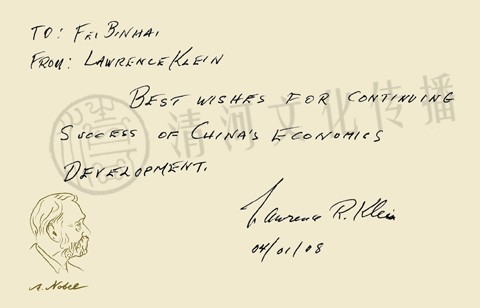 TO: FEI BINHAI
FROM: LAWRENCE KLEIN
BEST WISHES FOR CONTINUING
SUCCESS OF CHINA'S ECONOMICS
DEVELOPMENT.
清河文化传播
Lawrence R. Klein
04/01/08
A. Nobel